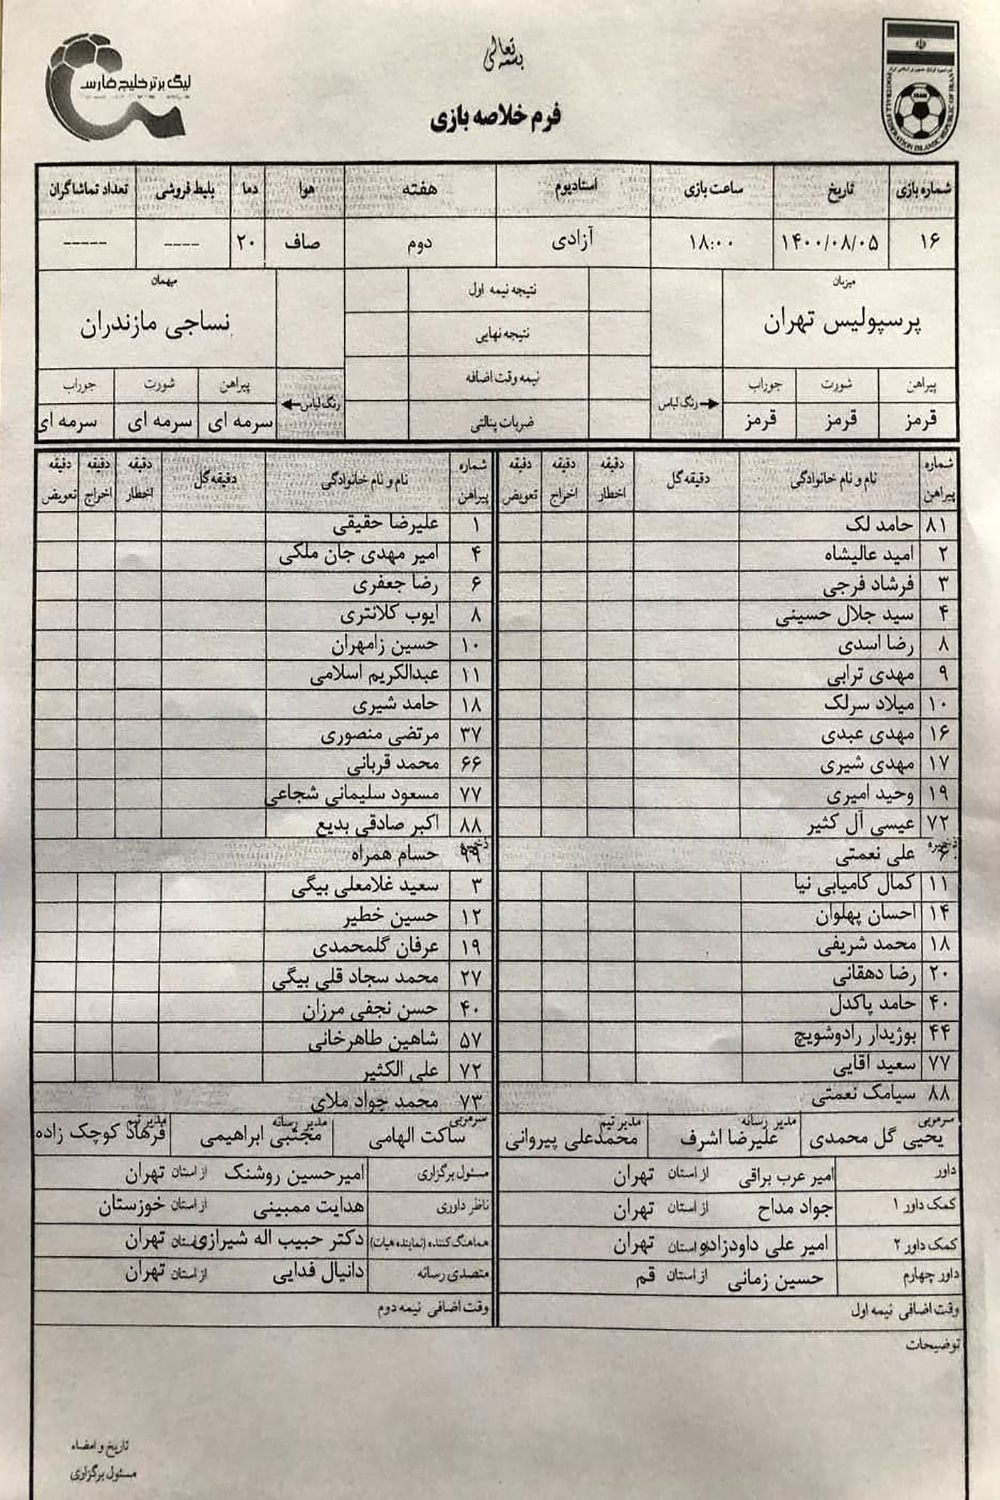 بسمه تعالی
لیگ برتر خلیج فارس
FOOTBALL FEDERATION ISLAMIC REPUBLIC OF IRAN
فرم خلاصه بازی
شماره بازی تاریخ ساعت بازی استادیوم هفته هوا دما بلیط فروشی تعداد تماشاگران
۱۶ ۱۴۰۰/۰۸/۰۵ ۱۸:۰۰ آزادی دوم صاف ۲۰ ---- -----
میزبان نتیجه نیمه اول میهمان
پرسپولیس تهران نتیجه نهایی نساجی مازندران
پیراهن شورت جوراب رنگ لباس نیمه وقت اضافه رنگ لباس پیراهن شورت جوراب
قرمز قرمز قرمز ضربات پنالتی سرمه ای سرمه ای سرمه ای
شماره پیراهن نام و نام خانوادگی دقیقه گل دقیقه اخطار دقیقه اخراج دقیقه تعویض شماره پیراهن نام و نام خانوادگی دقیقه گل دقیقه اخطار دقیقه اخراج دقیقه تعویض
۸۱ حامد لک ۱ علیرضا حقیقی
۲ امید عالیشاه ۴ امیر مهدی جان ملکی
۳ فرشاد فرجی ۶ رضا جعفری
۴ سید جلال حسینی ۸ ایوب کلانتری
۸ رضا اسدی ۱۰ حسین زامهران
۹ مهدی ترابی ۱۱ عبدالکریم اسلامی
۱۰ میلاد سرلک ۱۸ حامد شیری
۱۶ مهدی عبدی ۳۷ مرتضی منصوری
۱۷ مهدی شیری ۶۶ محمد قربانی
۱۹ وحید امیری ۷۷ مسعود سلیمانی شجاعی
۷۲ عیسی آل کثیر ۸۸ اکبر صادقی بدیع
ذخیره ۶ علی نعمتی ذخیره ۹۹ حسام همراه
۱۱ کمال کامیابی نیا ۳ سعید غلامعلی بیگی
۱۴ احسان پهلوان ۱۲ حسین خطیر
۱۸ محمد شریفی ۱۹ عرفان گلمحمدی
۲۰ رضا دهقانی ۲۷ محمد سجاد قلی بیگی
۴۰ حامد پاکدل ۴۰ حسن نجفی مرزان
۴۴ بوژیدار رادوشویچ ۵۷ شاهین طاهرخانی
۷۷ سعید آقایی ۷۲ علی الکثیر
۸۸ سیامک نعمتی ۷۳ محمد جواد ملای
سرمربی یحیی گل محمدی مدیر رسانه علیرضا اشرف مدیر تیم محمدعلی پیروانی سرمربی ساکت الهامی مدیر رسانه مجتبی ابراهیمی مدیر تیم فرهاد کوچک زاده
داور امیر عرب براقی از استان تهران مسئول برگزاری امیرحسین روشنک از استان تهران
کمک داور ۱ جواد مداح از استان تهران ناظر داوری هدایت ممبینی از استان خوزستان
کمک داور ۲ امیر علی داودزاده از استان تهران هماهنگ کننده (نماینده هیات) دکتر حبیب اله شیرازی از استان تهران
داور چهارم حسین زمانی از استان قم متصدی رسانه دانیال فدایی از استان تهران
وقت اضافی نیمه اول وقت اضافی نیمه دوم
توضیحات
تاریخ و امضاء
مسئول برگزاری